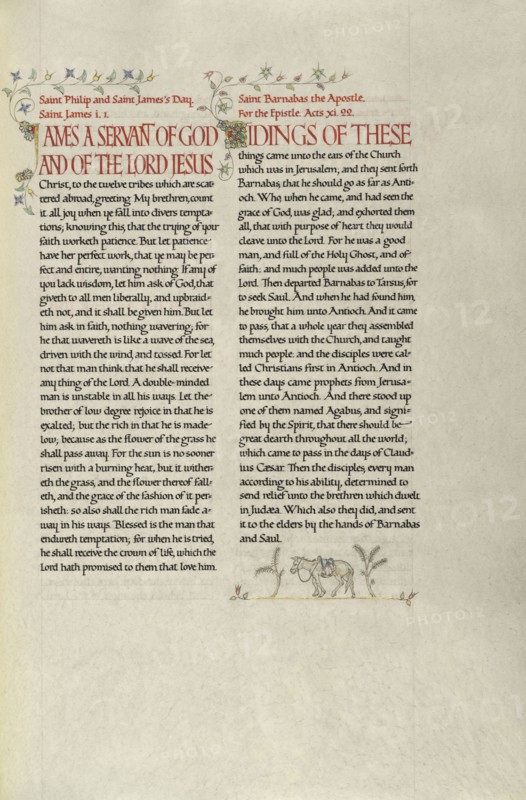 Saint Philip and Saint James's Day.
Saint James i. 1.
JAMES A SERVANT OF GOD
AND OF THE LORD JESUS
Christ, to the twelve tribes which are scat-
tered abroad, greeting. My brethren, count
it all joy when ye fall into divers tempta-
tions; knowing this, that the trying of your
faith worketh patience. But let patience
have her perfect work, that ye may be per-
fect and entire, wanting nothing. If any of
you lack wisdom, let him ask of God, that
giveth to all men liberally, and upbraid-
eth not, and it shall be given him. But let
him ask in faith, nothing wavering; for
he that wavereth is like a wave of the sea,
driven with the wind, and tossed. For let
not that man think that he shall receive
any thing of the Lord. A double-minded
man is unstable in all his ways. Let the
brother of low degree rejoice in that he is
exalted; but the rich in that he is made
low; because as the flower of the grass he
shall pass away. For the sun is no sooner
risen with a burning heat, but it wither-
eth the grass, and the flower thereof fall-
eth, and the grace of the fashion of it per-
isheth: so also shall the rich man fade a-
way in his ways. Blessed is the man that
endureth temptation; for when he is tried,
he shall receive the crown of life, which the
Lord hath promised to them that love him.
Saint Barnabas the Apostle.
For the Epistle. Acts xi. 22.
TIDINGS OF THESE
things came unto the ears of the Church
which was in Jerusalem; and they sent forth
Barnabas, that he should go as far as Anti-
och. Who, when he came, and had seen the
grace of God, was glad; and exhorted them
all, that with purpose of heart they would
cleave unto the Lord. For he was a good
man, and full of the Holy Ghost, and of
faith: and much people was added unto the
Lord. Then departed Barnabas to Tarsus, for
to seek Saul. And when he had found him,
he brought him unto Antioch. And it came
to pass, that a whole year they assembled
themselves with the Church, and taught
much people: and the disciples were cal-
led Christians first in Antioch. And in
these days came prophets from Jerusa-
lem unto Antioch. And there stood up
one of them named Agabus, and signi-
fied by the Spirit, that there should be
great dearth throughout all the world;
which came to pass in the days of Claud-
ius Cæsar. Then the disciples, every man
according to his ability, determined to
send relief unto the brethren which dwelt
in Judæa. Which also they did, and sent
it to the elders by the hands of Barnabas
and Saul.